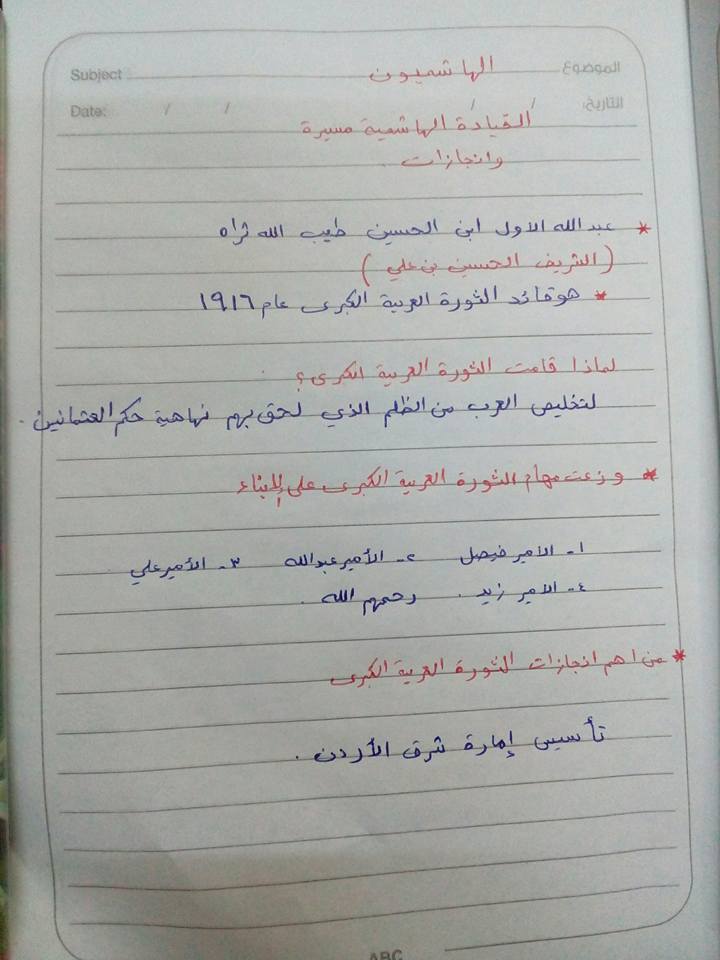 Subject الهاشميون الموضوع
Date: / / / / التاريخ:
القيادة الهاشمية مسيرة
وانجازات
* عبدالله الاول ابن الحسين طيب الله ثراه
(الشريف الحسين بن علي)
* هو قائد الثورة العربية الكبرى عام ١٩١٦
لماذا قامت الثورة العربية الكبرى؟
لتخليص العرب من الظلم الذي لحق بهم نهاية حكم العثمانين.
* وزعت مهام الثورة العربية الكبرى على الأبناء
١- الامير فيصل ٢- الأمير عبدالله ٣- الأمير علي
٤- الامير زيد. رحمهم الله.
* من اهم انجازات الثورة العربية الكبرى
تأسيس إمارة شرق الأردن.
ABC